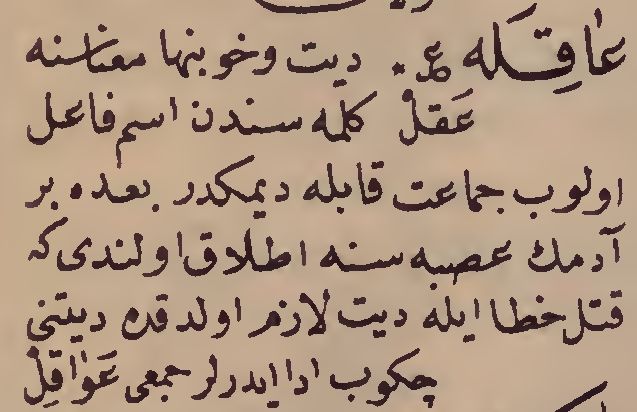 عاقله ع. ديت وخونبها معناسنه
عَقلْ كلمه سندن اسم فاعل
اولوب جماعت قابله ديمكدر بعده بر
آدمك عصبه سنه اطلاق اولندى كه
قتل خطا ايله ديت لازم اولدقده ديتنى
چكوب ادا ايدرلر جمعى عَوَاقِلْ